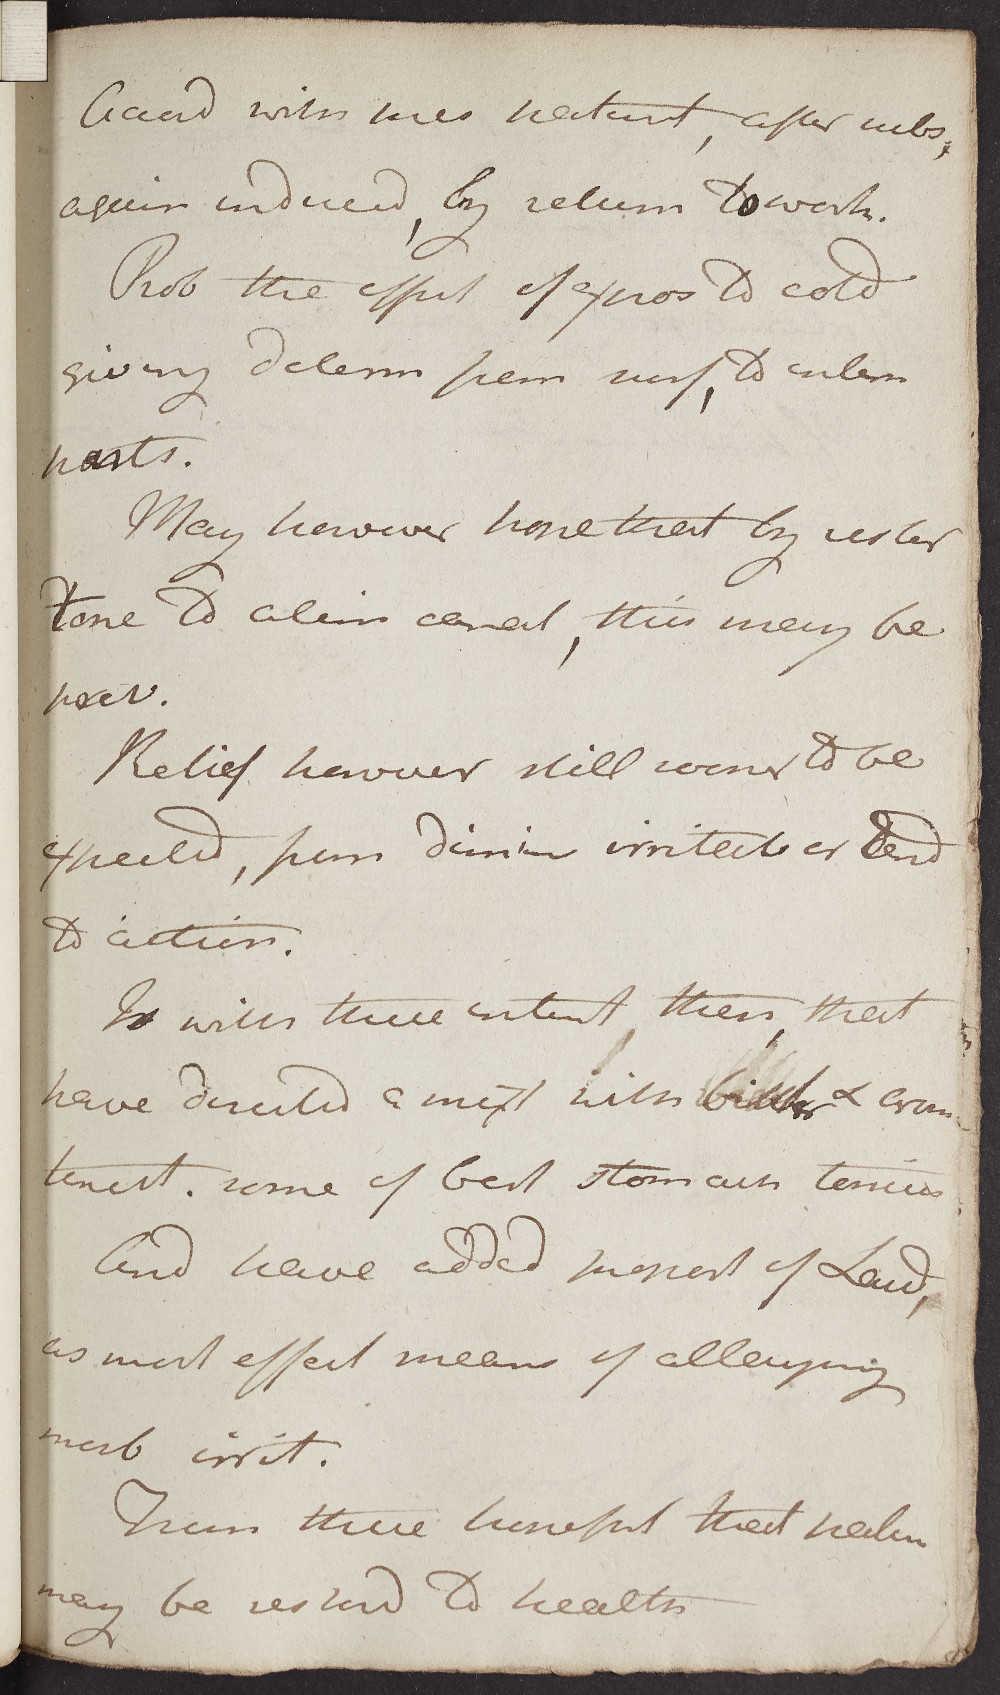 Accord with this patient, after subs,
again induced, by return to work.
Prob the effect of expos to cold
giving determ from surf, to intern
parts.
May however hope that by restor
tone to alim canal, this may be
prev.
Relief however still sooner to be
expected, from dimin irritab or tend
to action.
Is with these intent, then, that
have directed a mixt with bitter & arom
tinct. some of best stomach tonics
And have added proport of Laud,
as most effect means of allaying
morb irrit.
From these hopeful that patien
may be restord to health